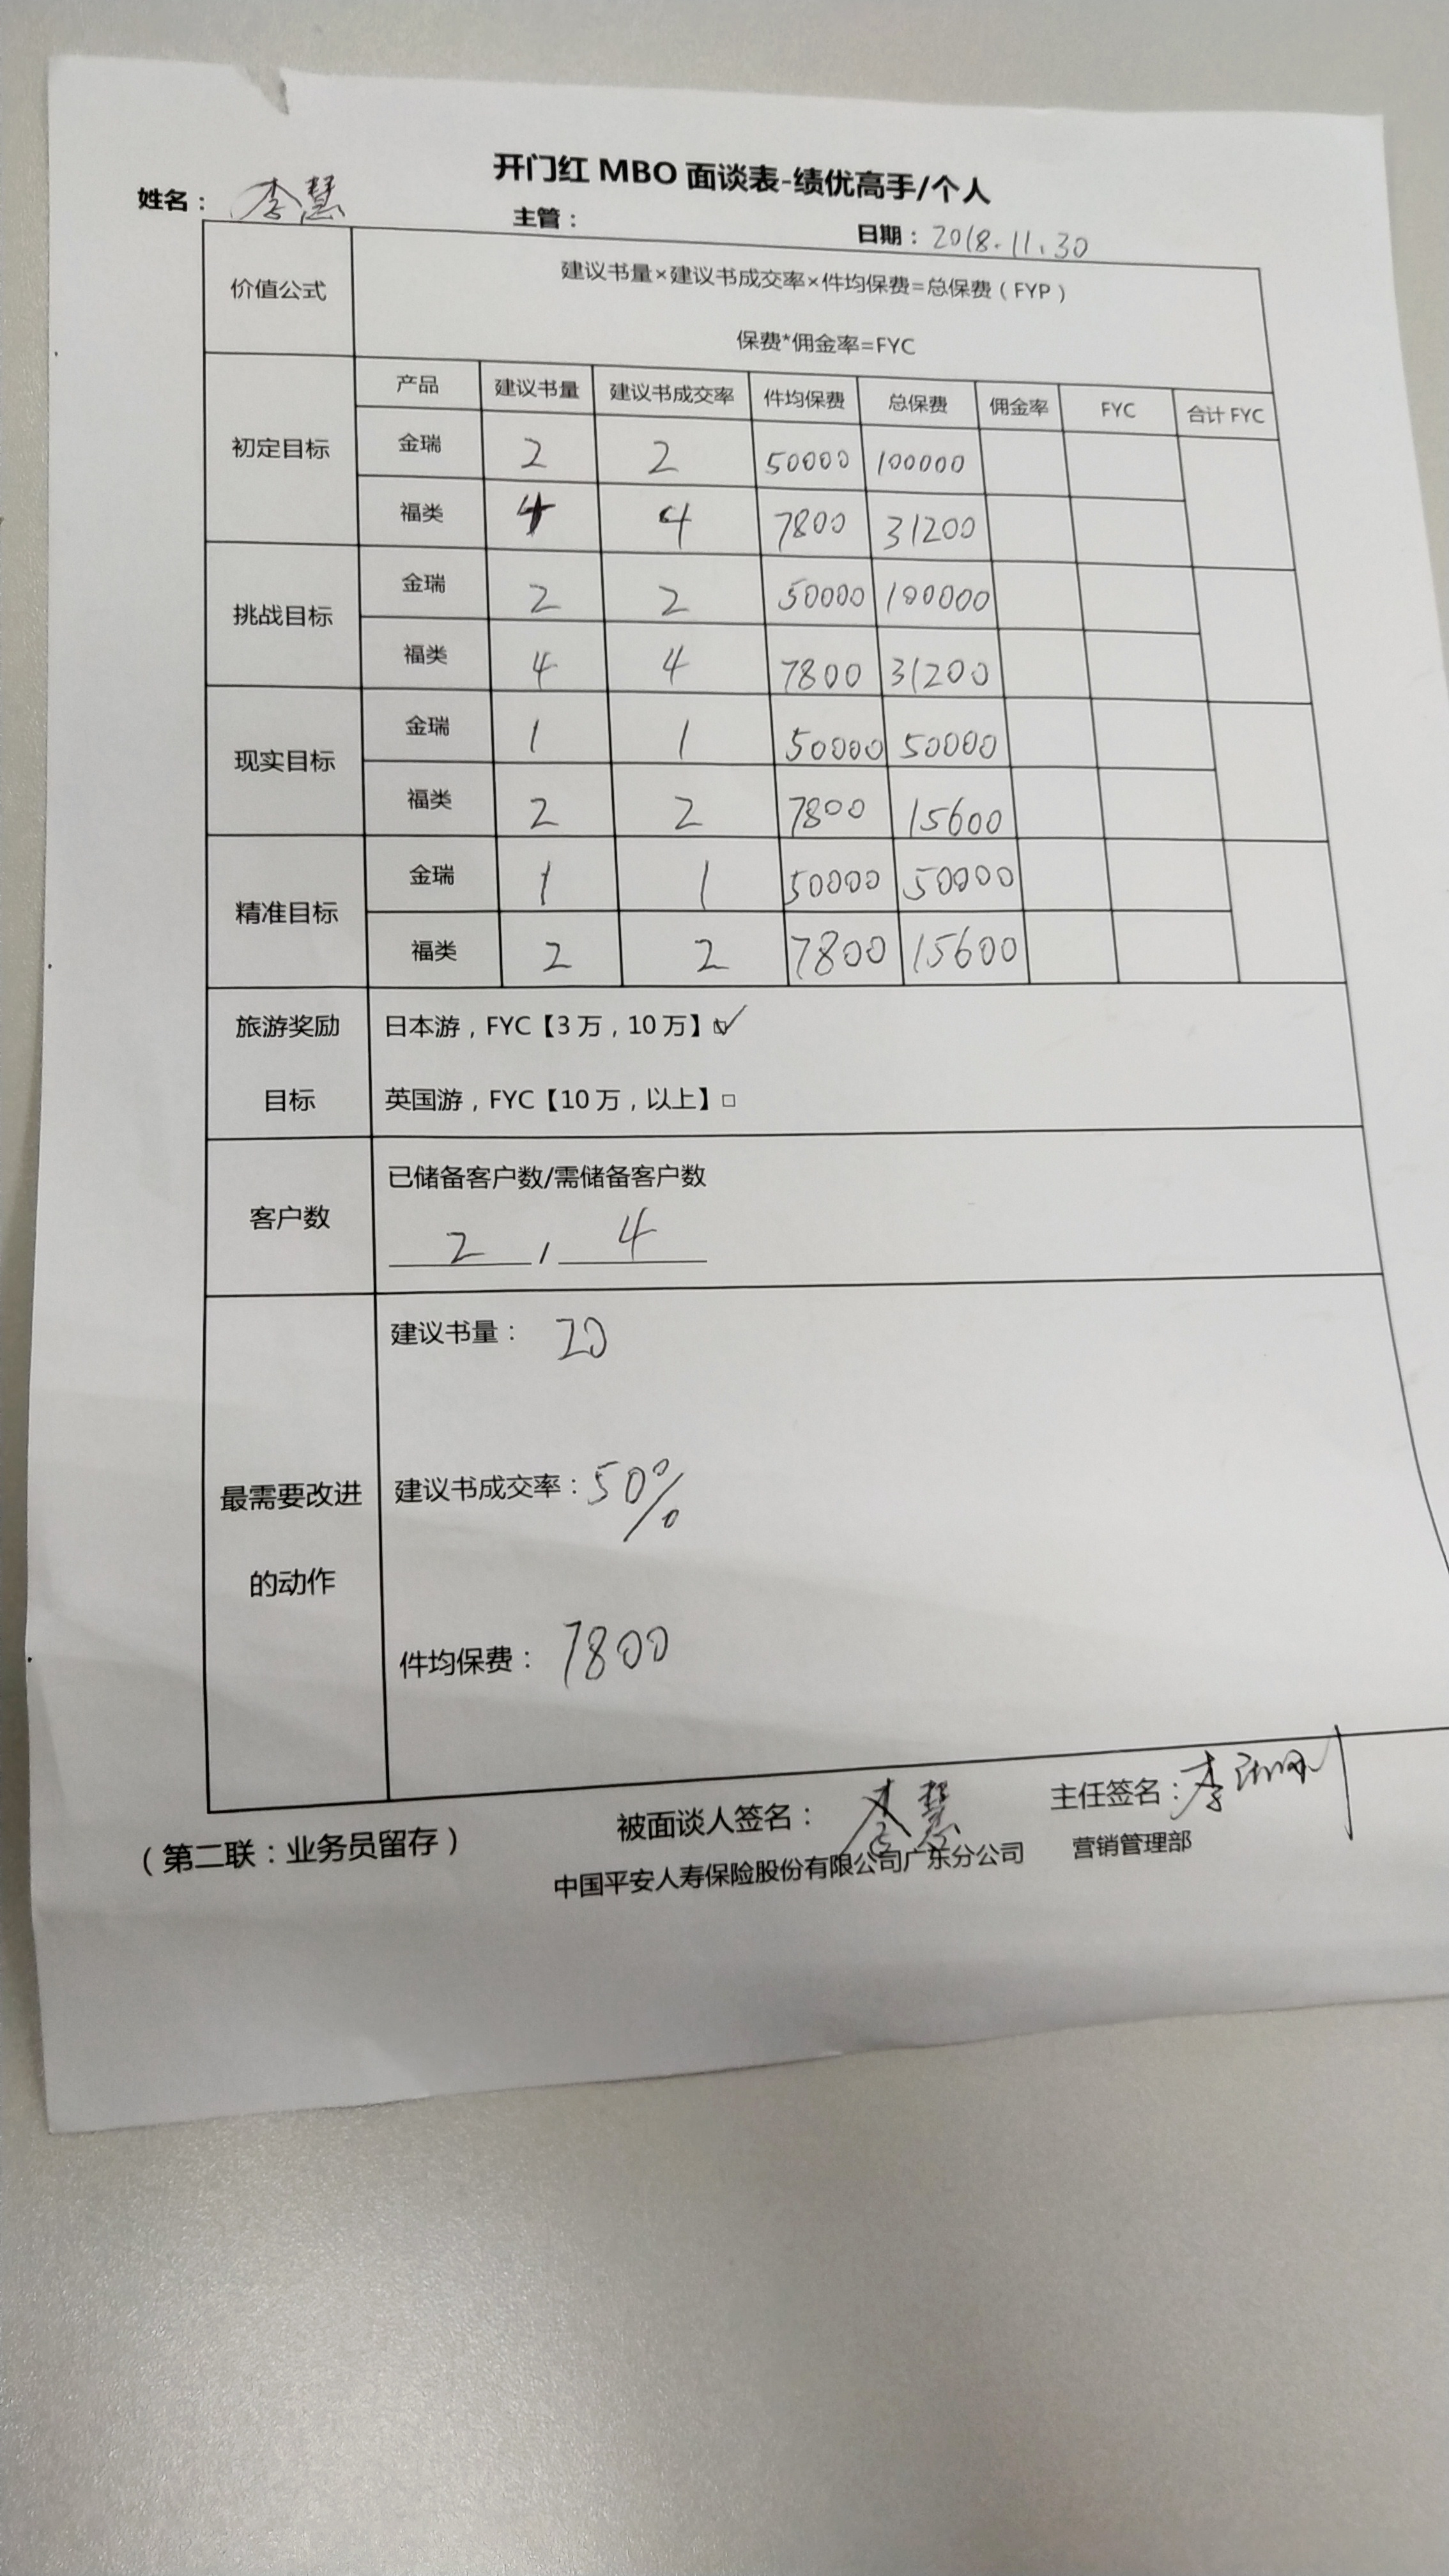 开门红 MBO 面谈表-绩优高手/个人
姓名： 李慧 主管： 日期：2018.11.30
价值公式 建议书量×建议书成交率×件均保费=总保费（FYP）
保费*佣金率=FYC
产品 建议书量 建议书成交率 件均保费 总保费 佣金率 FYC 合计 FYC
初定目标 金瑞 2 2 50000 100000
福类 4 4 7800 31200
挑战目标 金瑞 2 2 50000 100000
福类 4 4 7800 31200
现实目标 金瑞 1 1 50000 50000
福类 2 2 7800 15600
精准目标 金瑞 1 1 50000 50000
福类 2 2 7800 15600
旅游奖励 日本游，FYC【3 万，10 万】☑
目标 英国游，FYC【10 万，以上】□
已储备客户数/需储备客户数
客户数 2 / 4
建议书量： 20
最需要改进 建议书成交率：50%
的动作
件均保费： 7800
被面谈人签名： 李慧 主任签名：李
（第二联：业务员留存）
中国平安人寿保险股份有限公司广东分公司 营销管理部